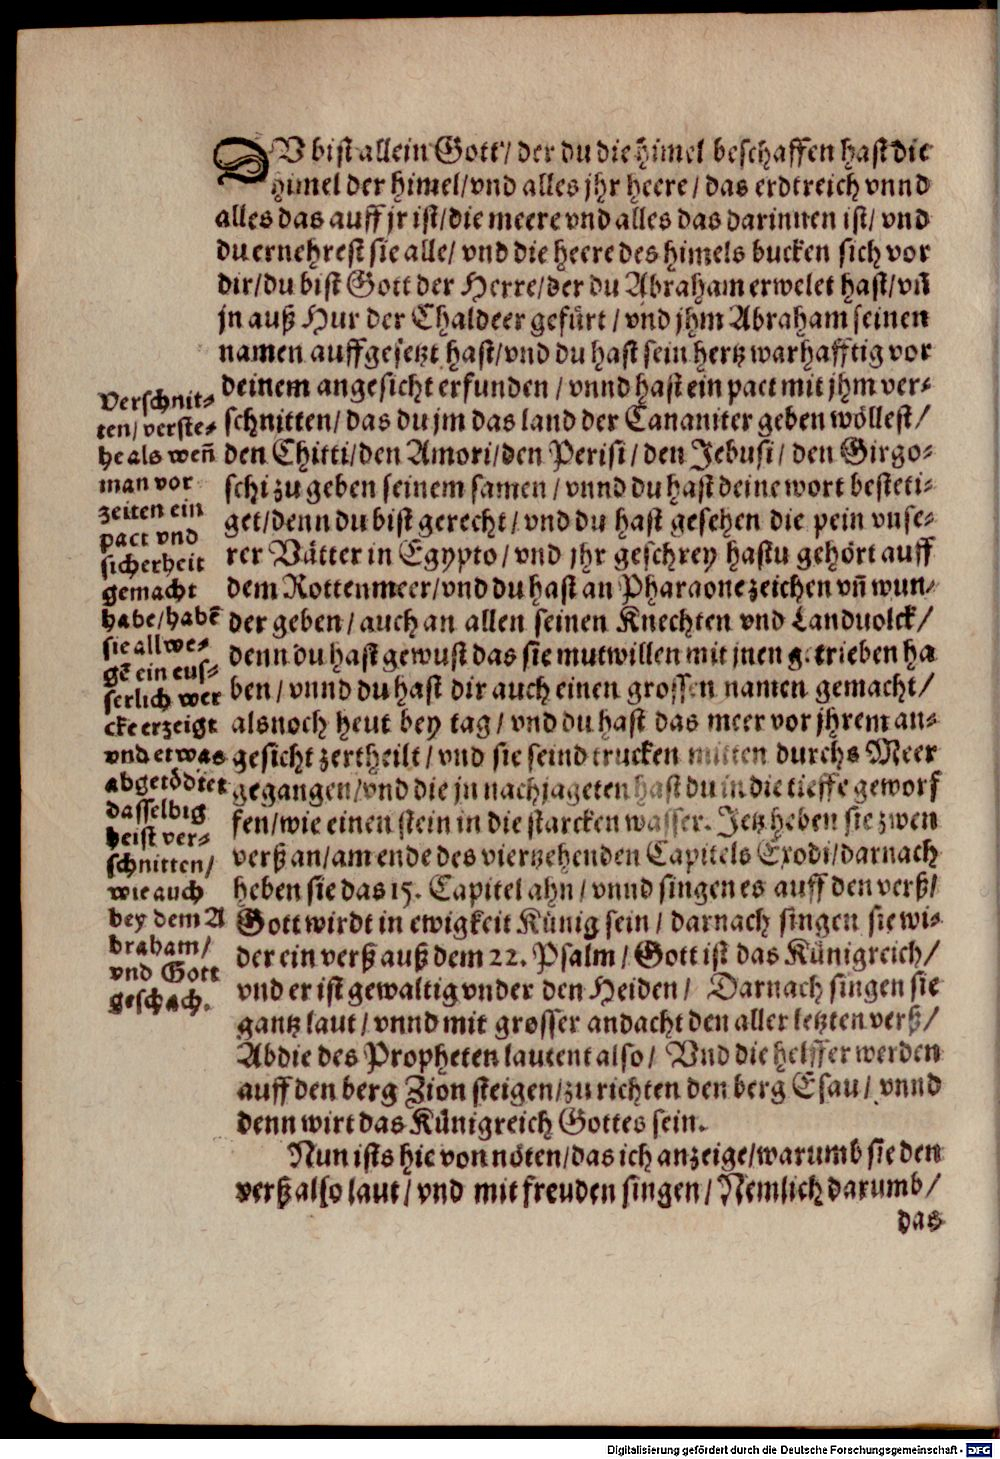 DV bist allein Gott/ der du die himel beschaffen hast die
himel der himel/vnd alles jhr heere/ das erdtreich vnnd
alles das auff jr ist/die meere vnd alles das darinnen ist/ vnd
du ernehrest sie alle/ vnd die heere des himels bucken sich vor
dir/du bist Gott der Herre/der du Abraham erwelet hast/vñ
jn auß Hur der Chaldeer gefürt/ vnd jhm Abraham seinen
namen auffgesetzt hast/vnd du hast sein hertz warhafftig vor
deinem angesicht erfunden/ vnnd hast ein pact mit jhm ver-
schnitten/ das du jm das land der Cananiter geben wöllest/
den Chitti/den Amori/den Perisi/ den Jebusi/ den Girgo-
schi zu geben seinem samen/ vnnd du hast deine wort besteti-
get/denn du bist gerecht/ vnd du hast gesehen die pein vnse-
rer Vätter in Egypto/ vnd jhr geschrey hastu gehört auff
dem Rottenmeer/vnd du hast an Pharaone zeichen vñ wun-
der geben/ auch an allen seinen Knechten vnd Landuolck/
denn du hast gewust das sie mutwillen mit jnen getrieben ha
ben/ vnnd du hast dir auch einen grossen namen gemacht/
als noch heut bey tag/ vnd du hast das meer vor jhrem an-
gesicht zertheilt/ vnd sie seind trucken mitten durchs Meer
gegangen/vnd die jn nachjageten hast du in die tieffe geworf
fen/wie einen stein in die starcken wasser. Jetz heben sie zwen
verß an/am ende des viertzehenden Capitels Exodi/darnach
heben sie das 15. Capitel ahn/ vnnd singen es auff den verß/
Gott wirdt in ewigkeit Künig sein/ darnach singen sie wi-
der ein verß auß dem 22. Psalm/ Gott ist das Künigreich/
vnd er ist gewaltig vnder den Heiden/ Darnach singen sie
gantz laut/ vnnd mit grosser andacht den aller letzten verß/
Abdie des Propheten lautent also/ Vnd die helffer werden
auff den berg Zion steigen/zu richten den berg Esau/ vnnd
denn wirt das Künigreich Gottes sein.
Nun ists hie von nöten/das ich anzeige/warumb sie den
verß also laut/ vnd mit freuden singen/ Nemlich darumb/
das
Verschnit-
ten/ verste-
he als weñ
man vor
zeiten ein
pact vnd
sicherheit
gemacht
habe/habẽ
sie allwe-
gẽ ein eus-
serlich wer
cke erzeigt
vnd etwas
abgetödtet
dasselbig
heist ver-
schnitten/
wie auch
bey dem A
braham/
vnd Gott
geschach.
Digitalisierung gefördert durch die Deutsche Forschungsgemeinschaft - DFG